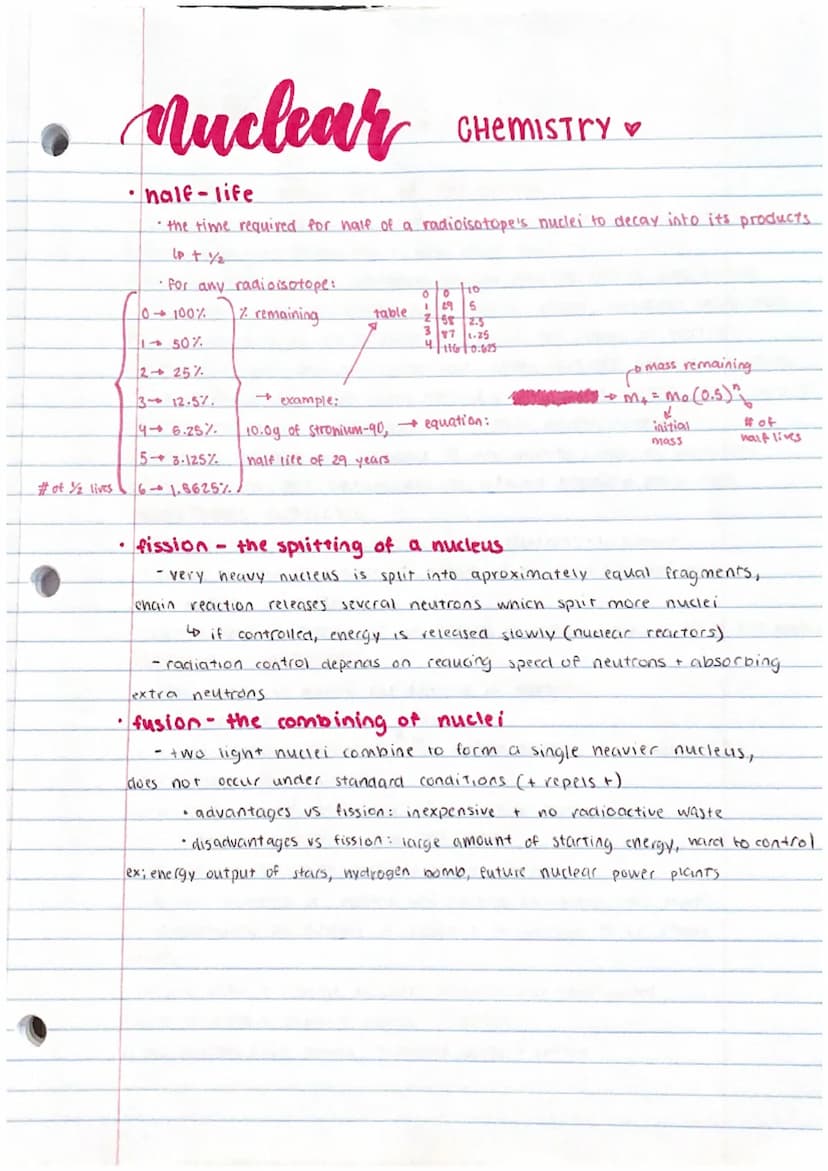 nuclear CHEMISTRY ♥
• half-life
• the time required for half of a radioisotope's nuclei to decay into its products
↳ t ½
• for any radioisotope:
0 → 100%
1 → 50%
2 → 25%
3 → 12.5%
4 → 6.25%
5 → 3.125%
# of ½ lives 6 → 1.5625%
% remaining
→ example:
10.0g of Stronium-90,
half life of 29 years
table
0 | 0 | 10
1 | 29 | 5
2 | 58 | 2.5
3 | 87 | 1.25
4 | 116 | 0.625
→ equation:
mass remaining
→ m₊ = m₀ (0.5)ⁿ
initial
mass
# of
half lives
• fission - the splitting of a nucleus
- very heavy nucleus is split into aproximately equal fragments,
chain reaction releases several neutrons which split more nuclei
↳ if controlled, energy is released slowly (nuclear reactors)
- radiation control depends on reducing speed of neutrons + absorbing
extra neutrons
• fusion - the combining of nuclei
- two light nuclei combine to form a single heavier nucleus,
does not occur under standard conditions (+ repels +)
• advantages vs fission: inexpensive + no radioactive waste
• disadvantages vs fission: large amount of starting energy, hard to control
ex; energy output of stars, hydrogen bomb, future nuclear power plants